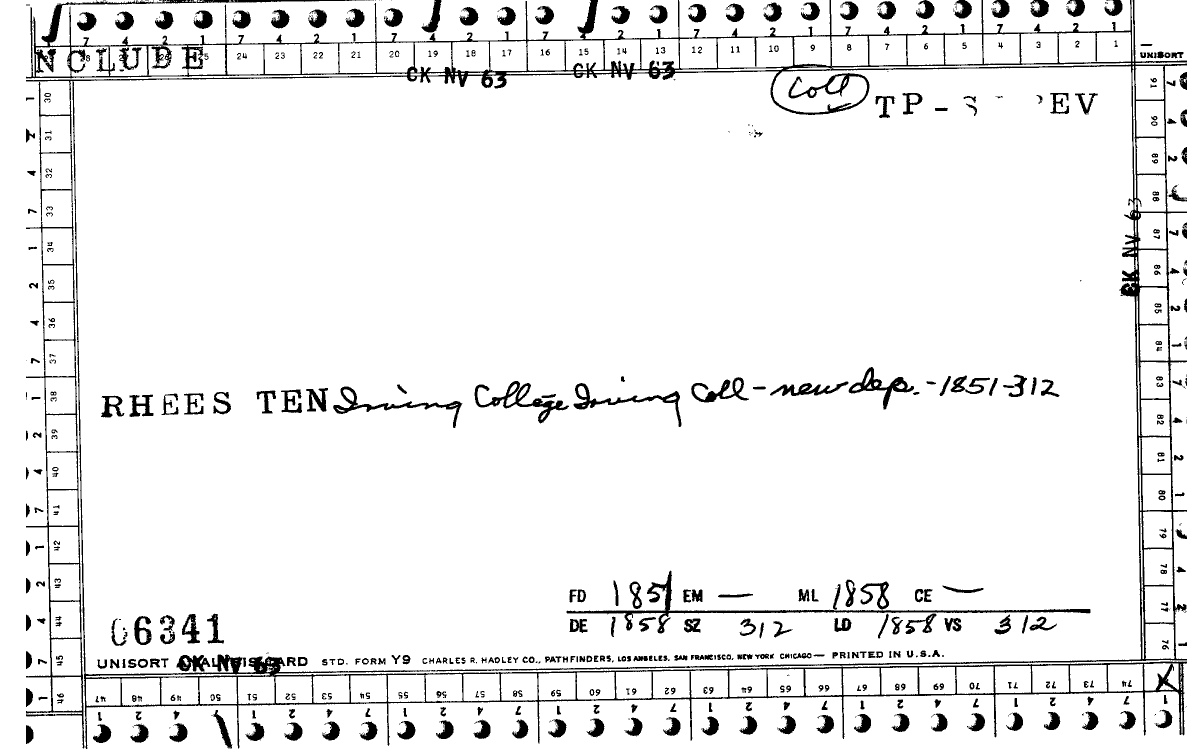 7 4 2 1 7 4 2 1 7 2 1 7 2 1 7 4 2 1 7 4 2 1 7 4 2 1
NCLUDE 24 23 22 21 20 19 18 17 16 15 14 13 12 11 10 9 8 7 6 5 4 3 2 1
UNISORT
CK NV 63 CK NV 63
Coll TP-S EV
30 31 32 33 34 35 36 37 38 39 40 41 42 43 44 45 46
91 90 89 88 87 86 85 84 83 82 81 80 79 78 77 76
CK NV 63
RHEES TEN Irving College Irving Coll - new dep. - 1851-312
FD 1851 EM — ML 1858 CE —
DE 1858 SZ 312 LD 1858 VS 312
06341
UNISORT ANALYSIS CARD STD. FORM Y9 CHARLES R. HADLEY CO., PATHFINDERS, LOS ANGELES, SAN FRANCISCO, NEW YORK CHICAGO — PRINTED IN U.S.A.
CK NV 63
47 48 49 50 51 52 53 54 55 56 57 58 59 60 61 62 63 64 65 66 67 68 69 70 71 72 73 74 X
1 2 4 1 2 4 7 1 2 4 7 1 2 4 7 1 2 4 7 1 2 4 7 1 2 4 7 1